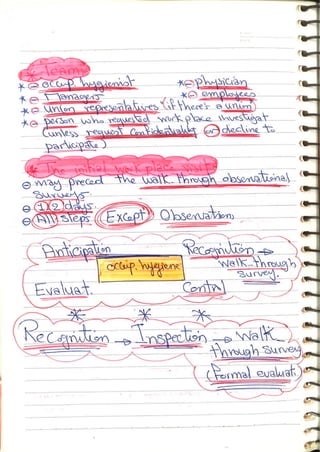 * Team:
* ⊖ occup. hygienist * ⊖ physician
* ⊖ Managers * ⊖ employees
* ⊖ union representatives (if there's a union)
* ⊖ person who requested workplace investigat
(unless request confidentiality or decline to
participate)
* The initial workplace visit
⊖ may preced the walk through observational
surveys
⊖ 1-2 days
⊖ All steps Except Observation
Anticipation Recognition →
walk through
survey.
occup. hygiene
Evaluat. Control
* * *
Recognition → Inspection → walk
through survey
(formal evaluati)